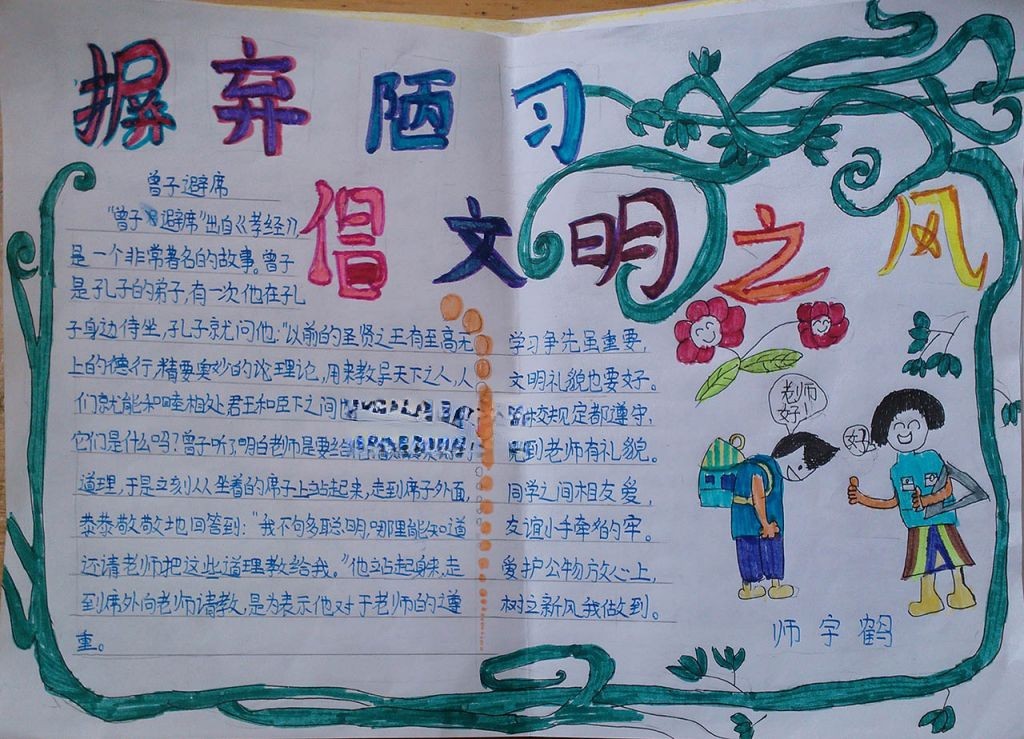 摒弃陋习
倡文明之风
曾子避席
“曾子避席”出自《孝经》,
是一个非常著名的故事。曾子
是孔子的弟子,有一次他在孔
子身边侍坐,孔子就问他:“以前的圣贤之王有至高无
上的德行,精要奥妙的论理论,用来教导天下之人,人
们就能和睦相处君王和臣下之间
它们是什么吗?曾子听了,明白老师是要给
道理,于是立刻从坐着的席子上站起来,走到席子外面,
恭恭敬敬地回答到:“我不够聪明,哪里能知道
还请老师把这些道理教给我。”他站起身来,走
到席外向老师请教,是为表示他对于老师的尊
重。
学习争先虽重要,
文明礼貌也要好。
校规定都遵守,
见到老师有礼貌。
同学之间相友爱,
友谊小手牵的牢。
爱护公物放心上,
树立新风我做到。
老师
好!
好!
师宇鹤